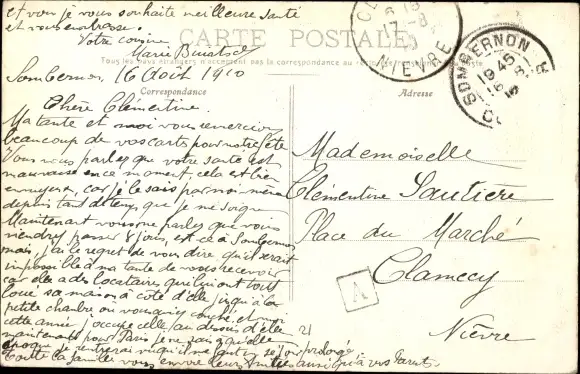 et vous je vous souhaite meilleure santé
et vous embrasse.
Votre cousine
Marie
CARTE POSTALE
Tous les pays étrangers n'acceptent pas la correspondance au recto
Sombernon, 16 Août 1910
Correspondance
Adresse
NIEVRE
17-8
SOMBERNON
19 45
16 -8
Chère Clémentine.
Ma tante et moi vous remercions
beaucoup de vos cartes pour notre fête
Vous nous parlez que votre santé est
mauvaise en ce moment, cela est bien
ennuyeux, car je le sais par moi même
depuis tant de temps que je me soigne
Maintenant vous me parlez que vous
viendrez passer 8 jours, est-ce à Sombernon
mais j'ai le regret de vous dire qu'il serait
impossible à ma tante de vous recevoir
car elle a des locataires qui lui ont tout
loué sa maison à côté d'elle jusqu'à la
petite chambre où vous aviez couché, et moi
cette année j'occupe celle au dessus d'elle
maintenant pour Paris je ne sais quelle
époque je rentrerai vu qu'il me faut un séjour prolongé
Toute la famille vous envoie leurs amitiés ainsi qu'à vos Parents.
Mademoiselle
Clémentine Sautière
Place du Marché
Clamecy
Nièvre
A
21